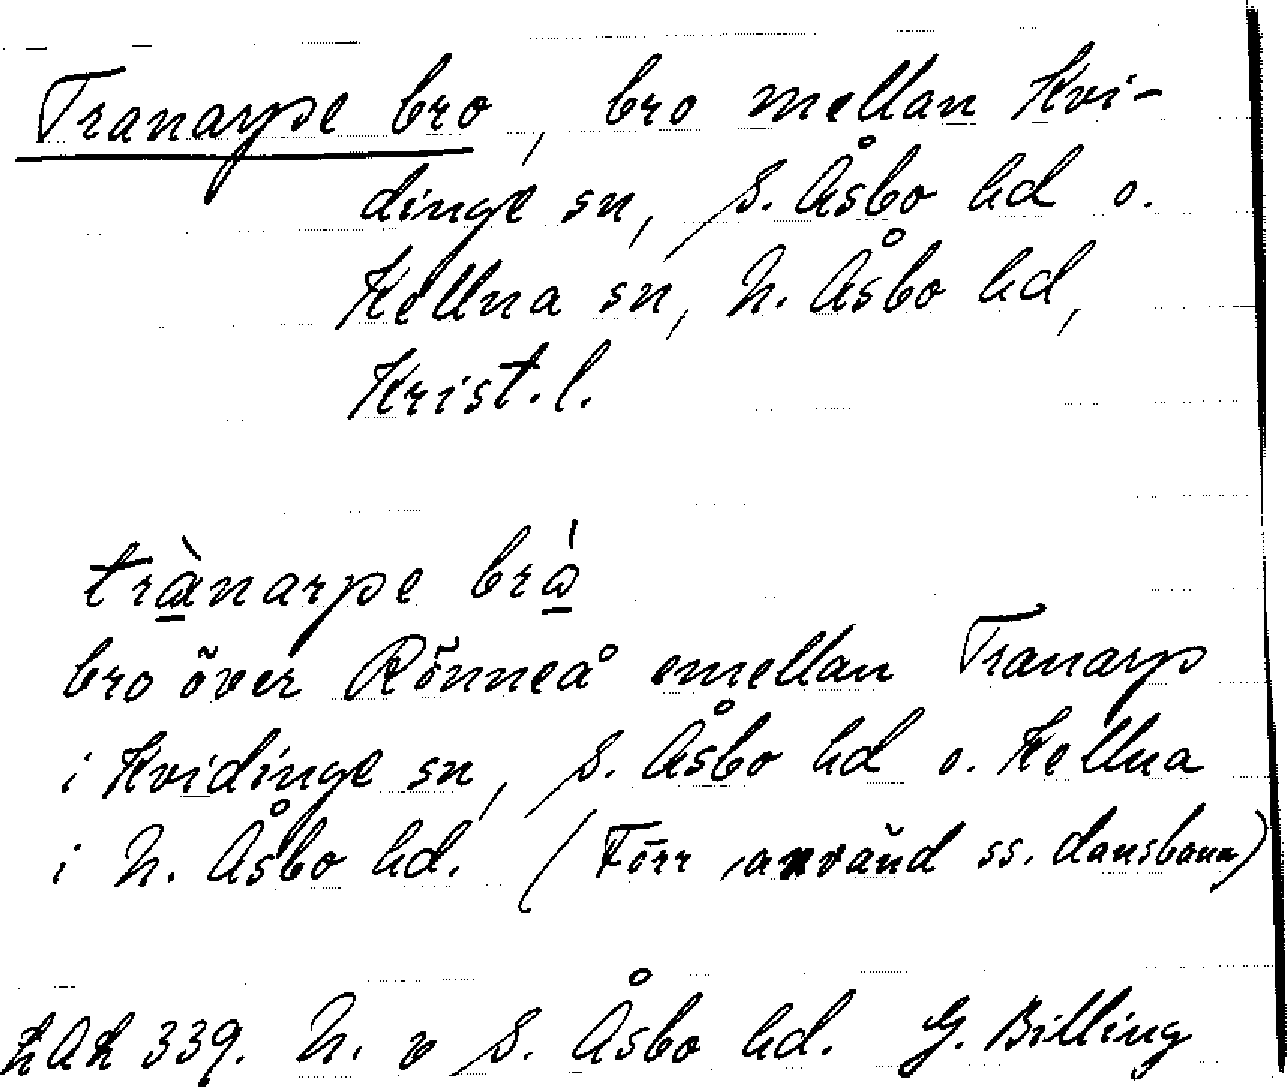 Tranarpe bro, bro mellan Kvi-
dinge sn, S. Åsbo hd o.
Kellna sn, N. Åsbo hd,
Krist. l.
trànarpe brá
bro över Rönneå emellan Tranarp
i Kvidinge sn, S. Åsbo hd o. Kellna
i N. Åsbo hd. (Förr använd ss. dansbana)
339. N. o S. Åsbo hd. G. Billing